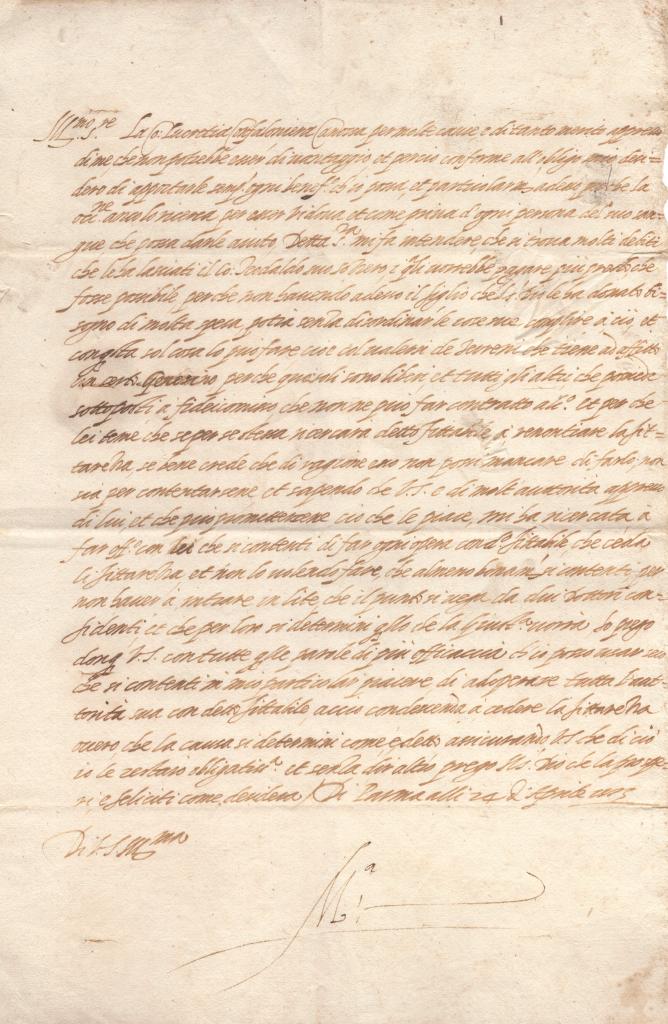 Ill.mo S.re La Co: Lucretia Confaloniera Canossa per molte cause è di tanto merito appresso
di me, che non potrebbe esser di vantaggio et perciò conforme all'obligo mio desi=
dero di aggiutarla semp.e in ogni benef.o ch'io possa, et particolarm.te adesso che la
occ.ne ancor lo ricerca, per esser vidova et come priva d'ogni persona del suo san=
gue, che possa darle aiuto. Detta S.ra mi fa intendere, che si trova molti debiti
che le ha lasciati il Co: suo i q.li vorrebbe pagare più presto che
fosse possibile, perche non havendo adesso il figlio che le ha donato bi=
sogno di molta spesa, potria senza disordinar le cose sue supplire a ciò, et
sol cosa lo può fare cioè col valersi de Terreni che tiene ad affitto
un certo perche quasoli sono liberi et tutti gli altri che possiede
sottoposti a fideicomisso che non ne può far contratto al.o et perche
lei teme che se per se stessa ricercarà detto fittabile a renontiare la fit=
tarezza, se bene crede che di raggione esso non possi mancare di farlo, non
sia per contentarsene et sapendo che V.S. è di molta autorità appresso
di lui, et che può promettersene ciò che le piace, mi ha ricercata a
far off.o con lei che si contenti di far ogni opera con d.o fittabile, che ceda
la fittarezza et non lo volendo fare, che almeno si contenti per
non haver a intrare in lite, che il punto si vega da dui Dottori con=
fidenti et che per loro si determini q.llo che la Giust.a vorrà. Io prego
donq. V.S. con tutte q.lle parole di più efficaccia ch'io posso usar seco
che si contenti in mio particolar piacere di adoperare tutta l'aut=
torità sua con detto fittabile, acciò condescenda a cedere la fittarezza
overo, che la causa si determini come è detto assicurando V.S. che di ciò
io le restarò obligatiss.a et senza dir altro prego N.S. Dio che la prospe=
ri, e feliciti come desidera. Di Parma alli 24 di Aprile
Di V.S. Ill.ma